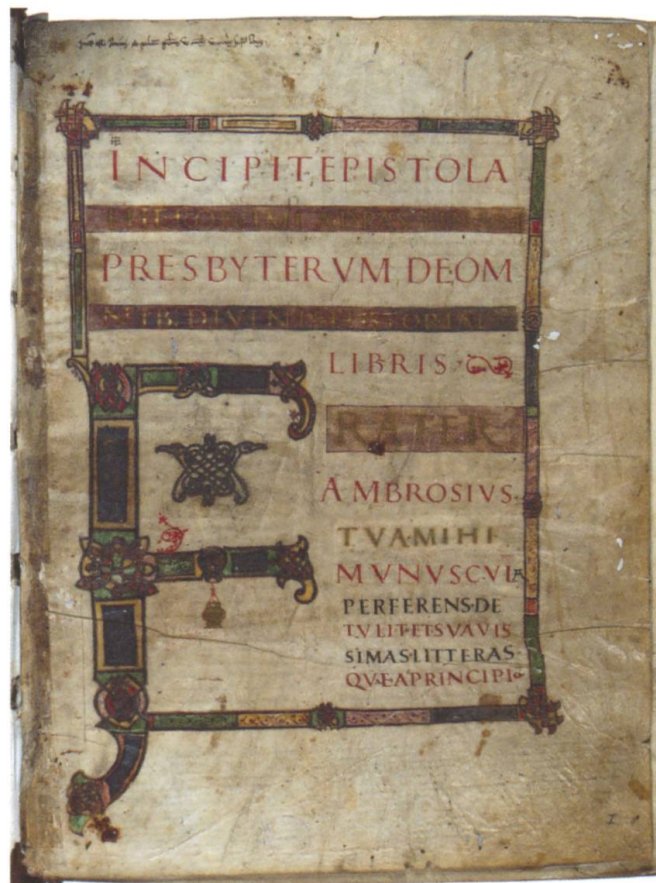 INCIPIT EPISTOLA
PRESBYTERVM DE OM
NIB DIVINAE HISTORIAE
LIBRIS
FRATER
AMBROSIVS
TVA MIHI
MVNVSCVLA
PERFERENS·DE
TVLIT·ET SVAVIS
SIMAS·LITTERAS·
QVAE A PRINCIPIO